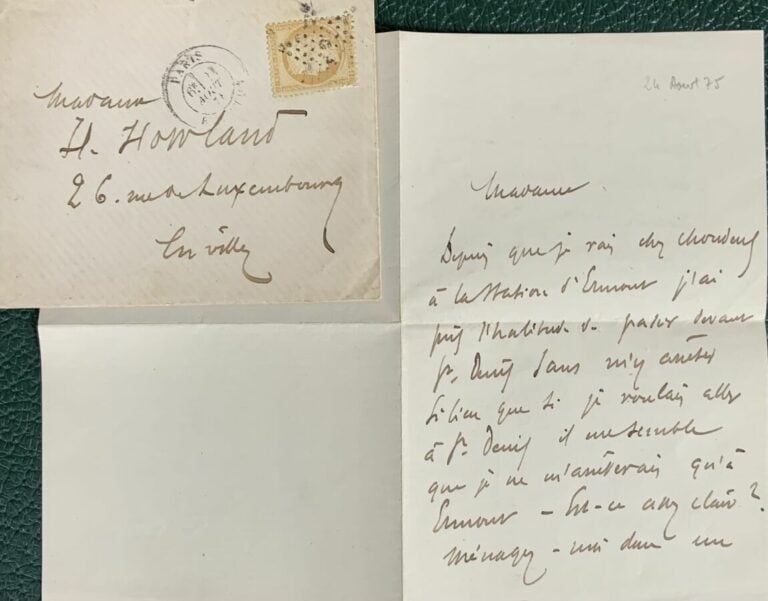 Madame
H. Howland
26. rue de Luxembourg
En ville
PARIS
AOUT
24 Aout 75
Madame
Depuis que je vais chez Choudens
à la station d'Ermont j'ai
pris l'habitude de passer devant
St. Denis sans m'y arrêter
si bien que si je voulais aller
à St. Denis il me semble
que je ne m'arrêterais qu'à
Ermont - Est-ce assez clair?
Ménagez-moi donc un